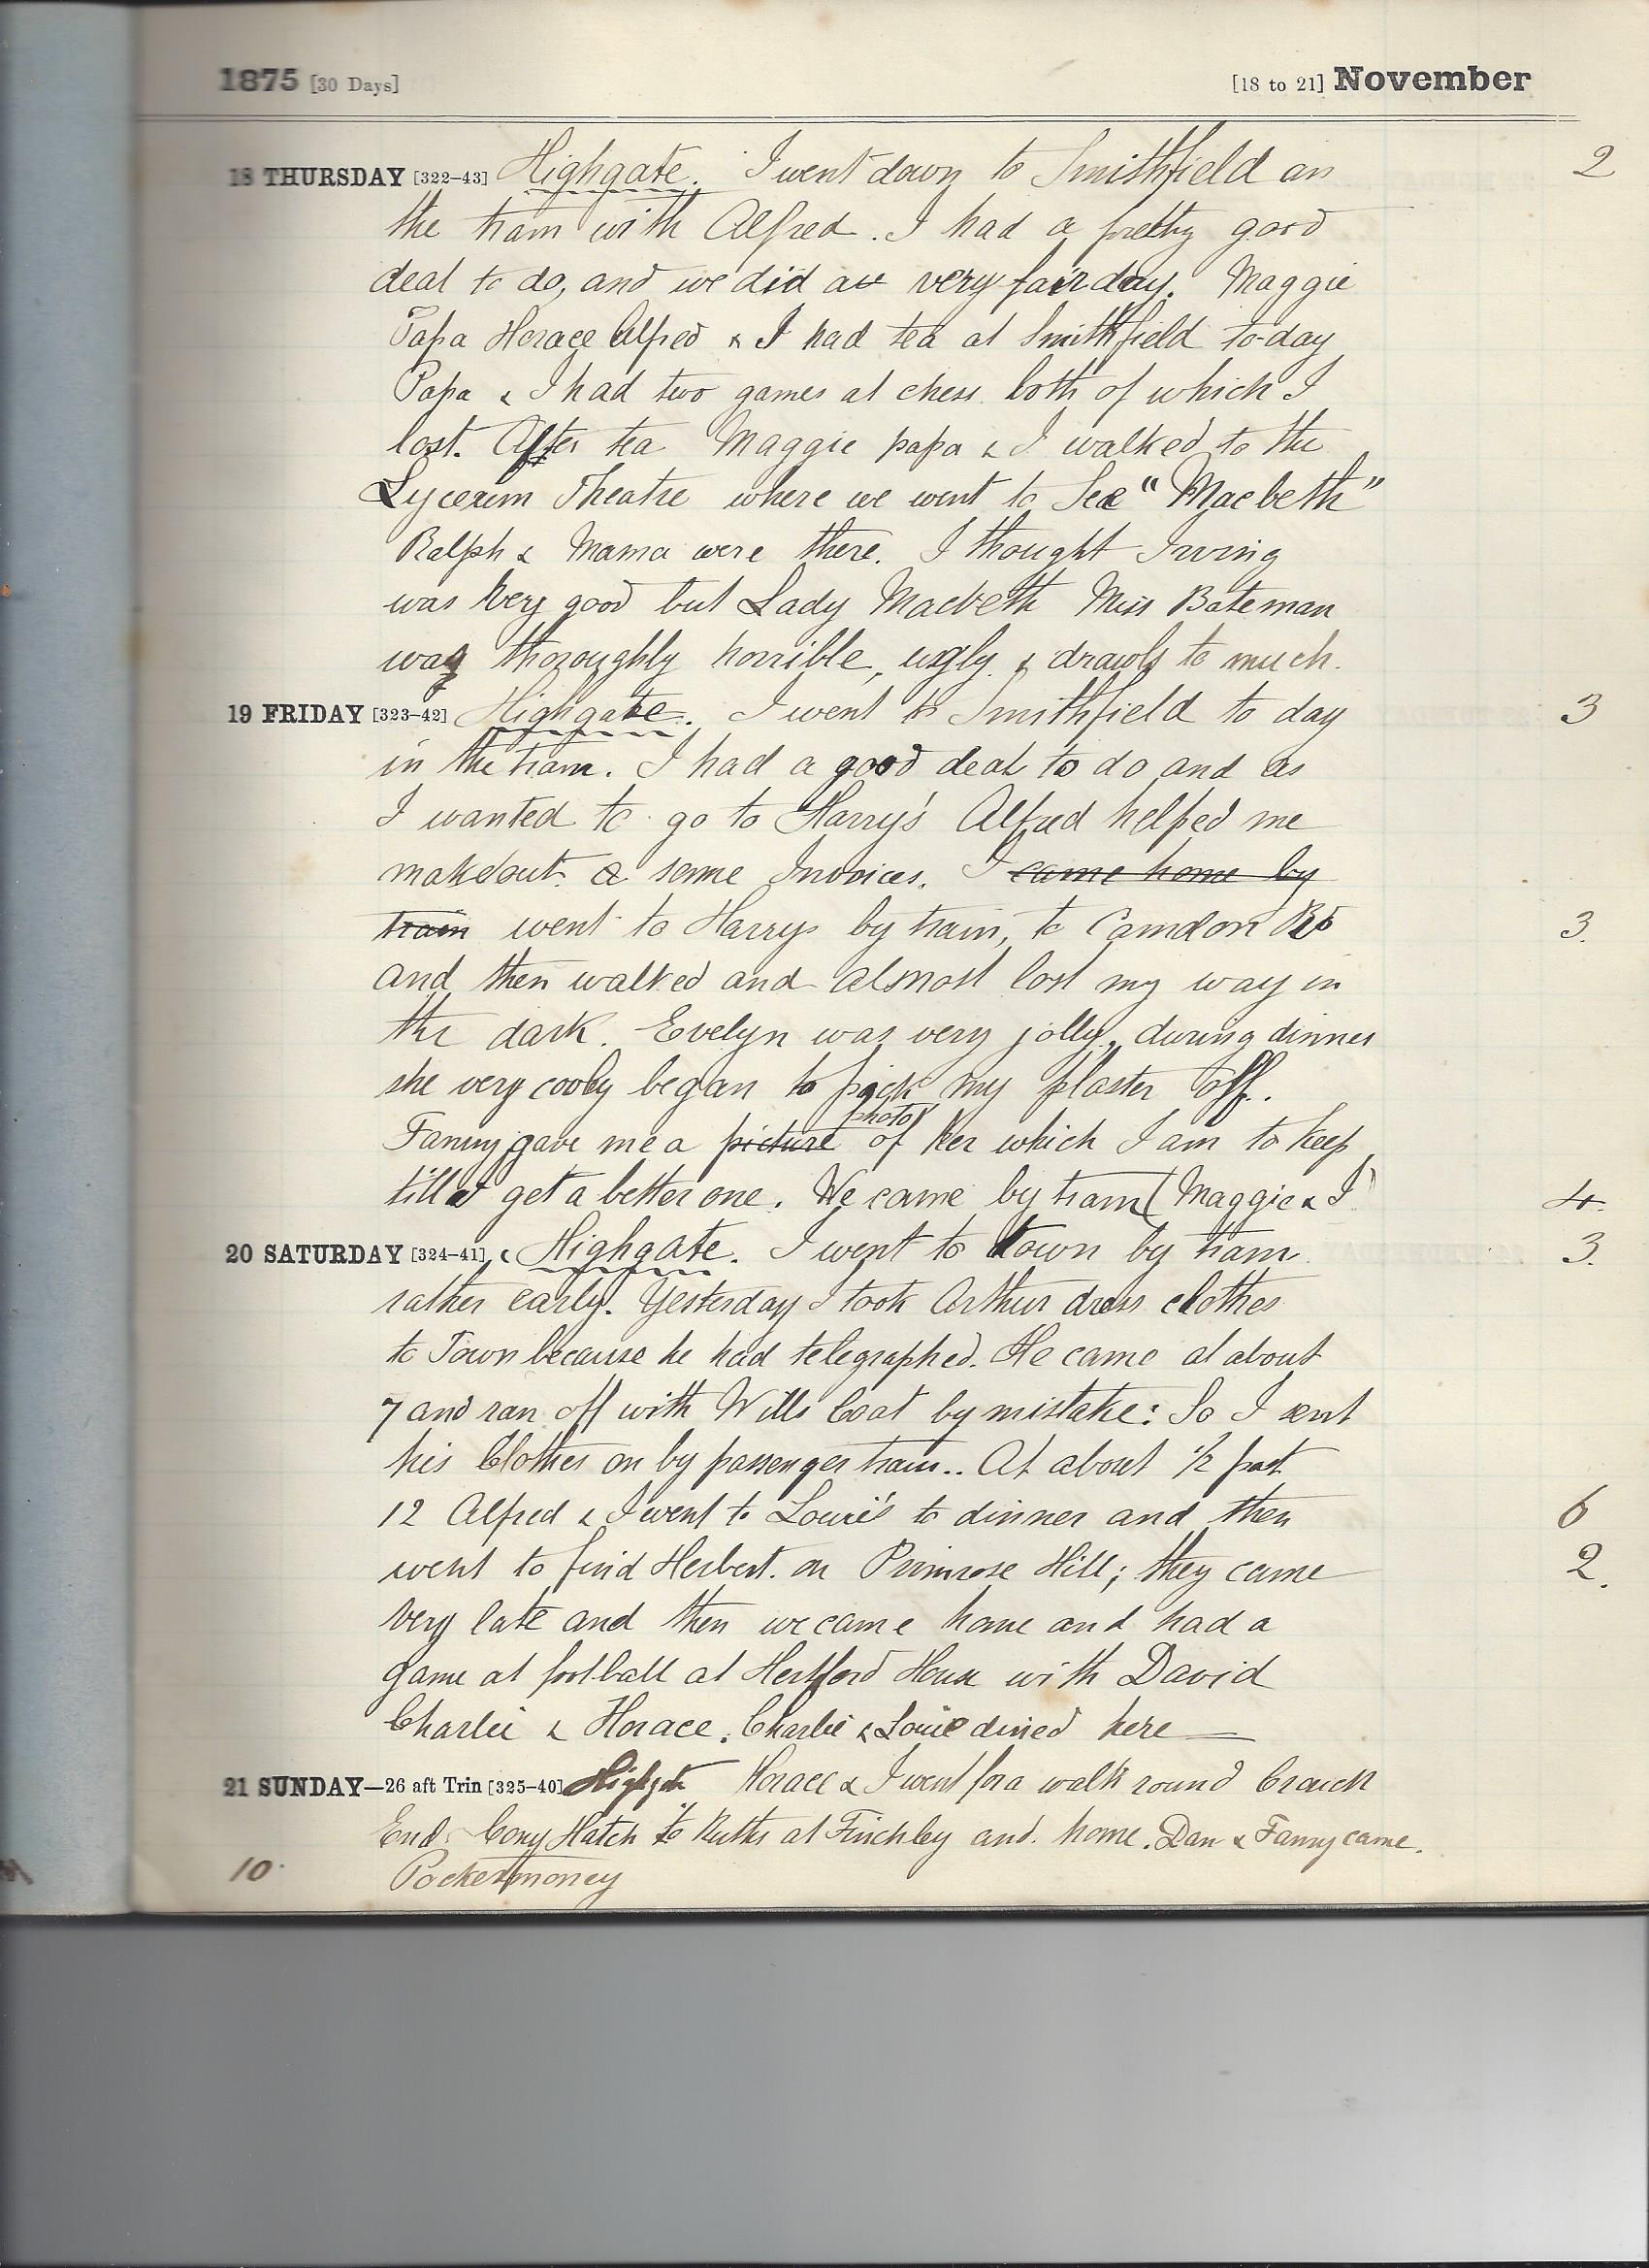 1875 [30 Days] [18 to 21] November
18 THURSDAY [322-43] Highgate. I went down to Smithfield on 2
the tram with Alfred. I had a pretty good
deal to do, and we did a very fair day. Maggie
Papa Horace Alfred & I had tea at Smithfield to-day
Papa & I had two games at chess both of which I
lost. After tea Maggie papa & I walked to the
Lyceum Theatre where we went to See "Macbeth"
Ralph & Mama were there. I thought Irving
was very good but Lady Macbeth Miss Bateman
was thoroughly horrible, ugly & drawls to much.
19 FRIDAY [323-42] Highgate. I went to Smithfield to day 3
in the tram. I had a good deal to do and as
I wanted to go to Harry's Alfred helped me
make out a some Invoices. I came home by
train went to Harrys by train, to Camdon Rd 3.
and then walked and almost lost my way in
the dark. Evelyn was very jolly, during dinner
she very cooly began to pick my plaster off.
photo
Fanny gave me a picture of her which I am to keep
till I get a better one. We came by tram (Maggie & I) 4.
20 SATURDAY [324-41] Highgate. I went to town by tram 3.
rather early. Yesterday I took Arthur dress clothes
to Town because he had telegraphed. He came at about
7 and ran off with Wills Coat by mistake: So I sent
his Clothes on by passenger train.. At about 1/2 past
12 Alfred & I went to Louie's to dinner and then 6
went to find Herbert. on Primrose Hill; they came 2.
very late and then we came home and had a
game at football at Hertford House with David
Charlie & Horace. Charlie & Louie dined here
21 SUNDAY—26 aft Trin [325-40] Highgate Horace & I went for a walk round Crouch
End Cony Hatch to Ruths at Finchley and. home. Dan & Fanny came.
10. Pocketmoney